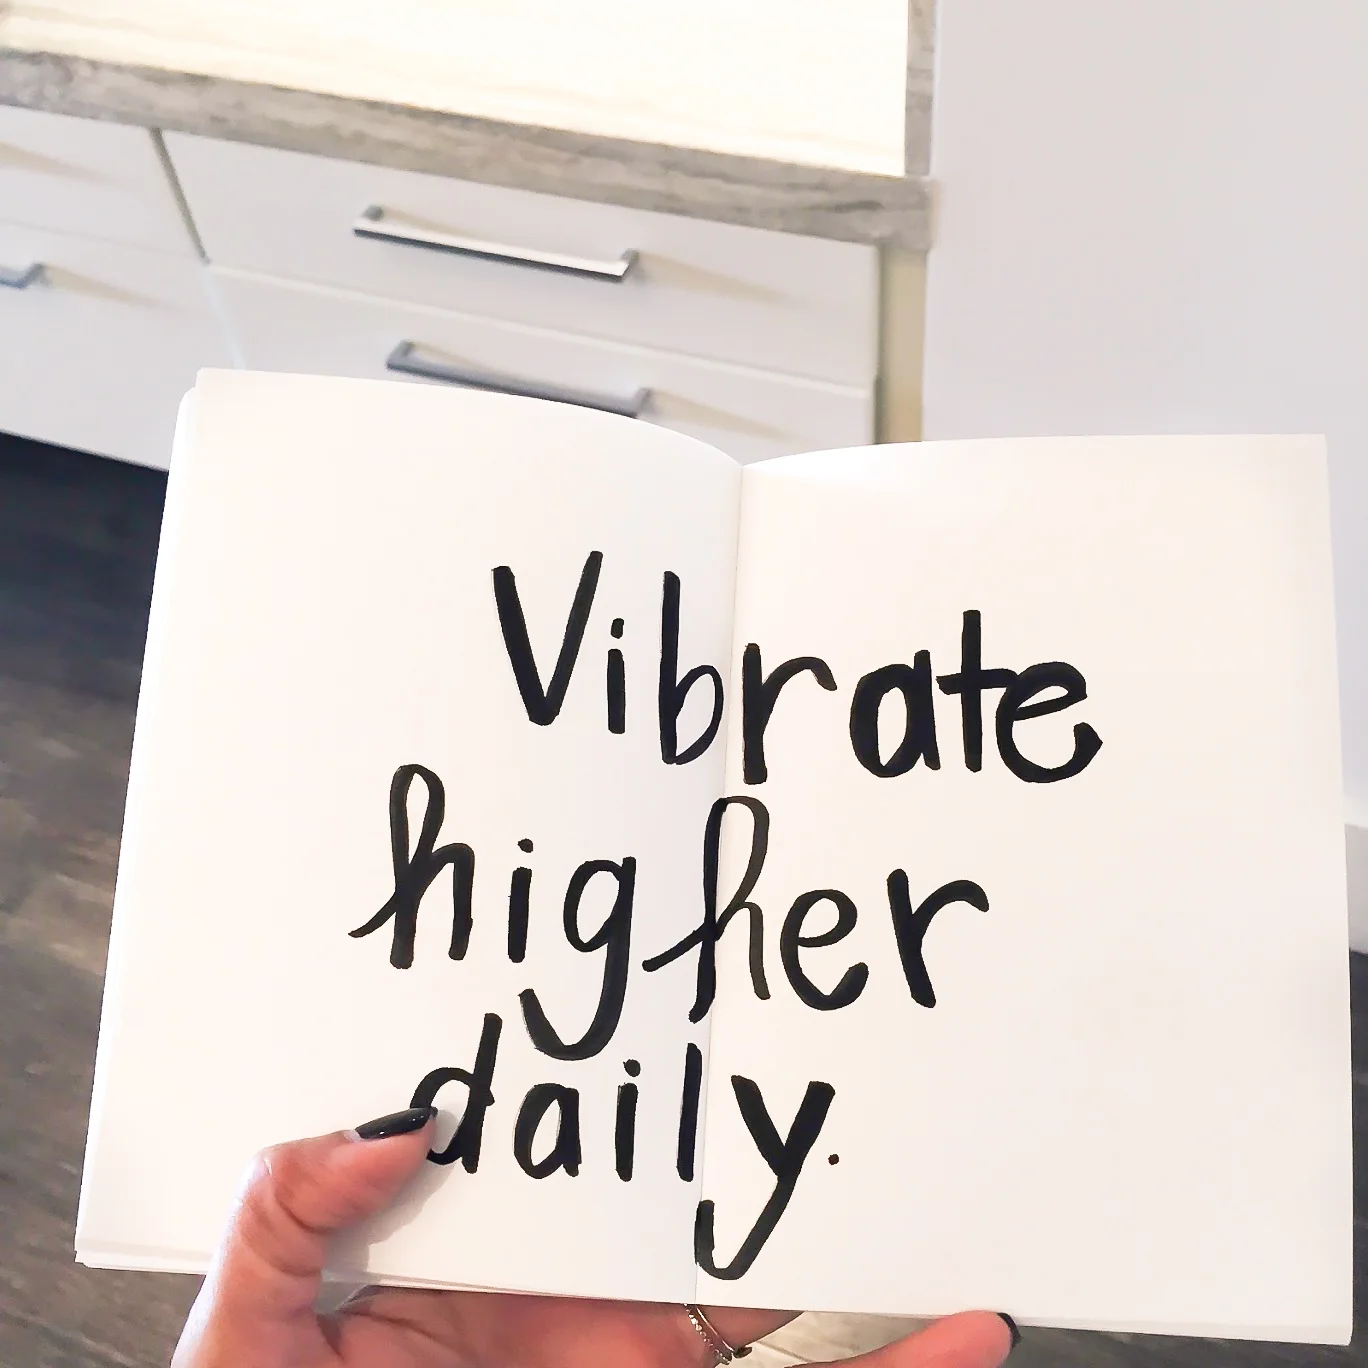 Vibrate
higher
daily.